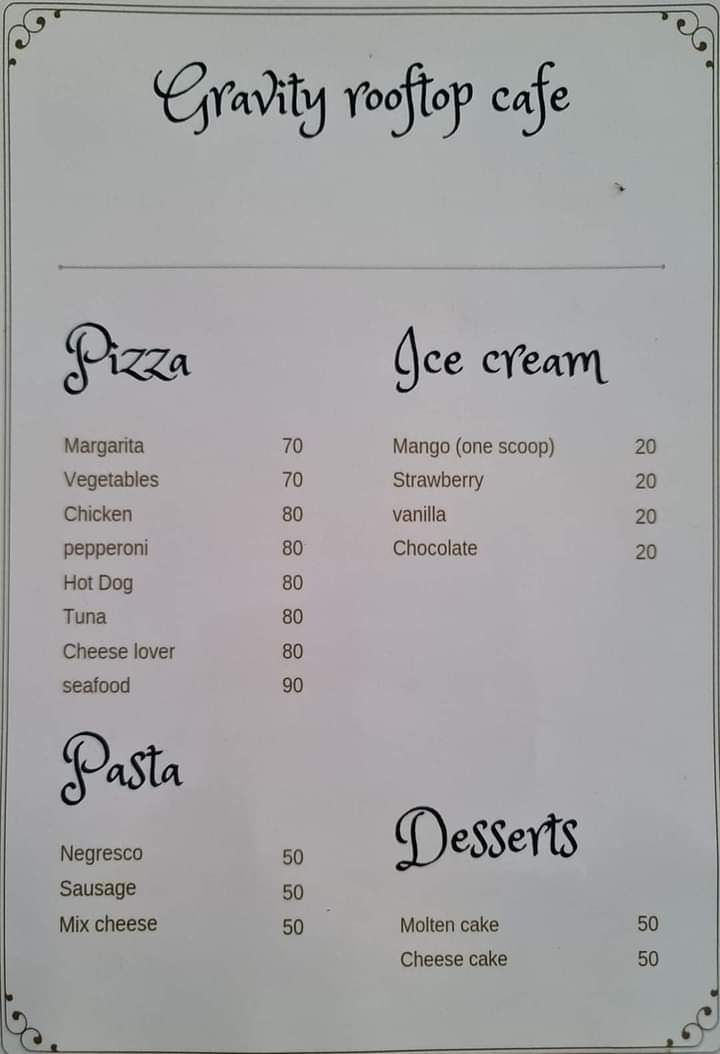 Gravity rooftop cafe
Pizza
Margarita 70
Vegetables 70
Chicken 80
pepperoni 80
Hot Dog 80
Tuna 80
Cheese lover 80
seafood 90
Pasta
Negresco 50
Sausage 50
Mix cheese 50
Ice cream
Mango (one scoop) 20
Strawberry 20
vanilla 20
Chocolate 20
Desserts
Molten cake 50
Cheese cake 50